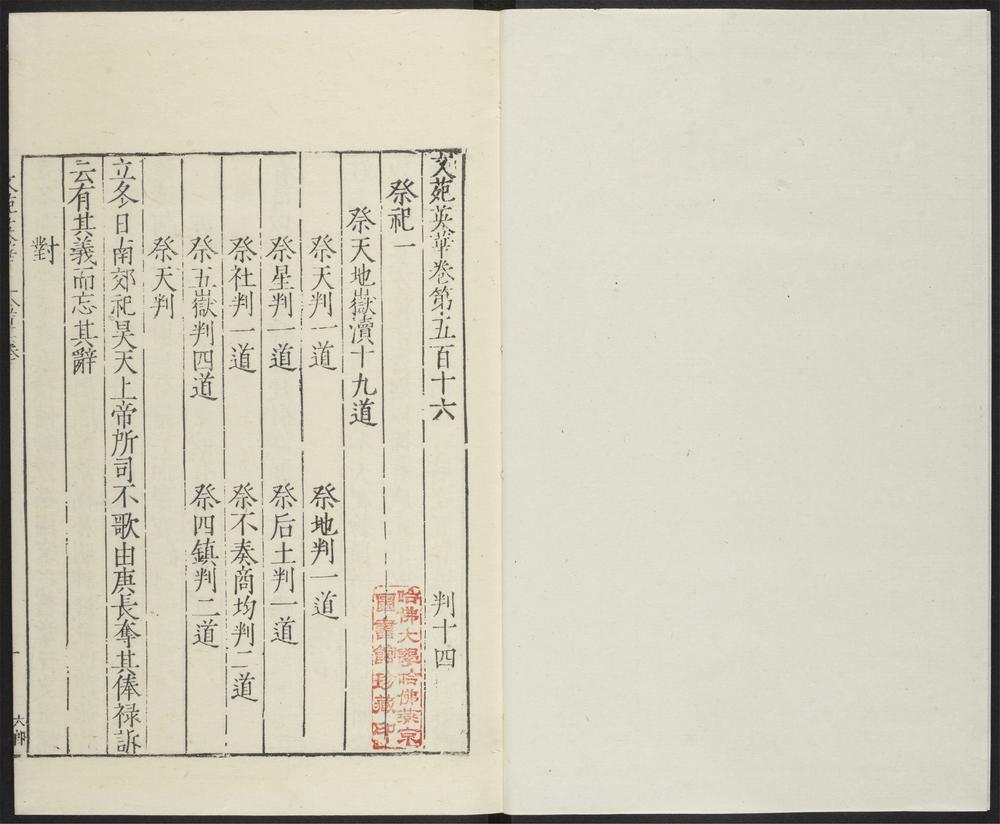 文苑英華卷第五百十六 判十四
祭祀一
祭天地嶽瀆十九道
祭天判一道 祭地判一道
祭星判一道 祭后土判一道
祭社判一道 祭不奏商均判二道
祭五嶽判四道 祭四鎮判二道
祭天判
立冬日南郊祀昊天上帝所司不歌由庚長奪其俸禄訴
云有其義而忘其辭
對
哈佛大學哈佛燕京
圖書館珍藏印